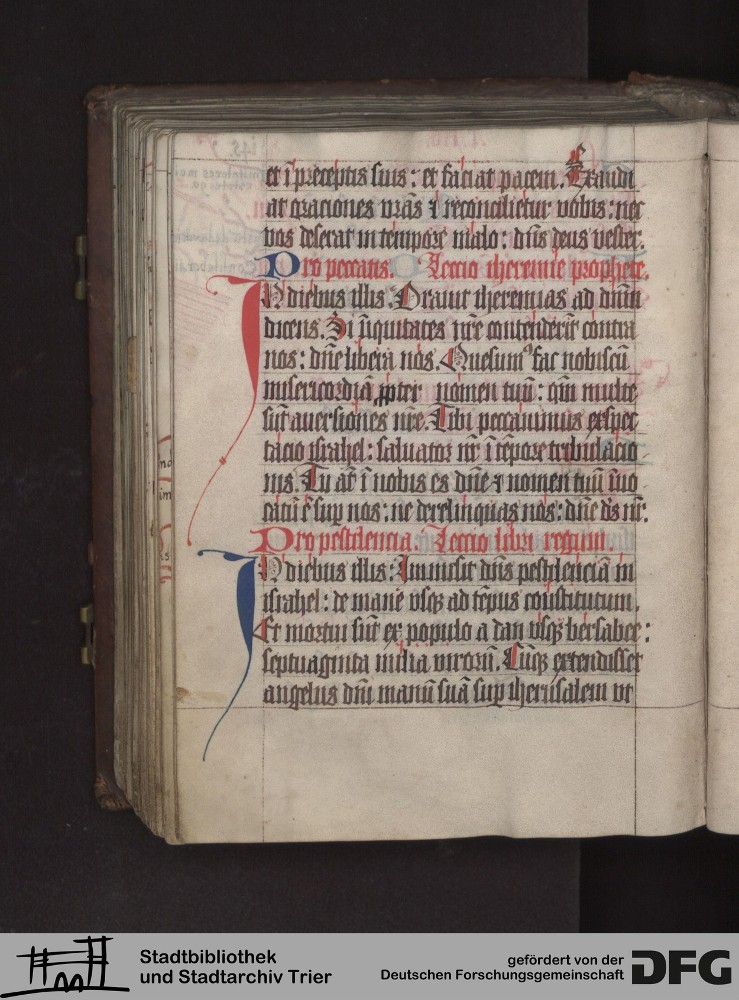 et ī preceptis suis: et faciat pacem. Exaudi
at oraciones vrās ⁊ reconcilietur vobis: nec
vos deserat in tempore malo: dn̄s deus vester.
Pro peccatis. Leccio iheremie prophete.
In diebus illis. Orauit iheremias ad dn̄m
dicens. Si īiquitates nr̄e contenderīt contra
nos: dn̄e libera nos. Quesumꝰ fac nobiscū
misericordiā ꝓpter nomen tuū: qm̄ multe
sūt auersiones nr̄e. Tibi peccauimus exspec
tacio israhel: saluator nr̄ ī tēpore tribulacio
nis. Tu aūt ī nobis es dn̄e ⁊ nomen tuū īuo
catū ē sup nos: ne derelinquas nos: dn̄e ds̄ nr̄.
Pro pestilencia. Leccio libri regum.
In diebus illis: Immisit dn̄s pestilenciā in
israhel: de mane vsqꝫ ad tēpus constitutum.
Et mortui sūt ex populo a dan vsqꝫ bersabee:
septuaginta milia virorū. Cūqꝫ extendisset
angelus dn̄i manū suā sup iherusalem vt
Stadtbibliothek
und Stadtarchiv Trier
gefördert von der
Deutschen Forschungsgemeinschaft
DFG